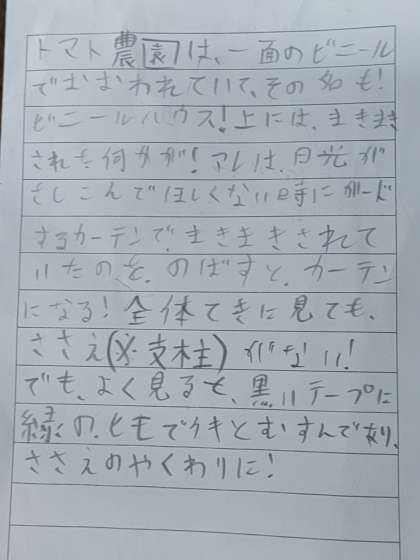 トマト農園は、一面のビニール
でおおわれていて、その名も!
ビニールハウス!上には、まきまき
された何かが!アレは、日光が
さしこんでほしくない時にガード
するカーテンで、まきまきされて
いたのを、のばすと、カーテン
になる!全体てきに見ても、
ささえ(※・支柱)がない!
でも、よく見ると、黒いテープに
緑の、ヒモでクキとむすんで有り、
ささえのやくわりに!